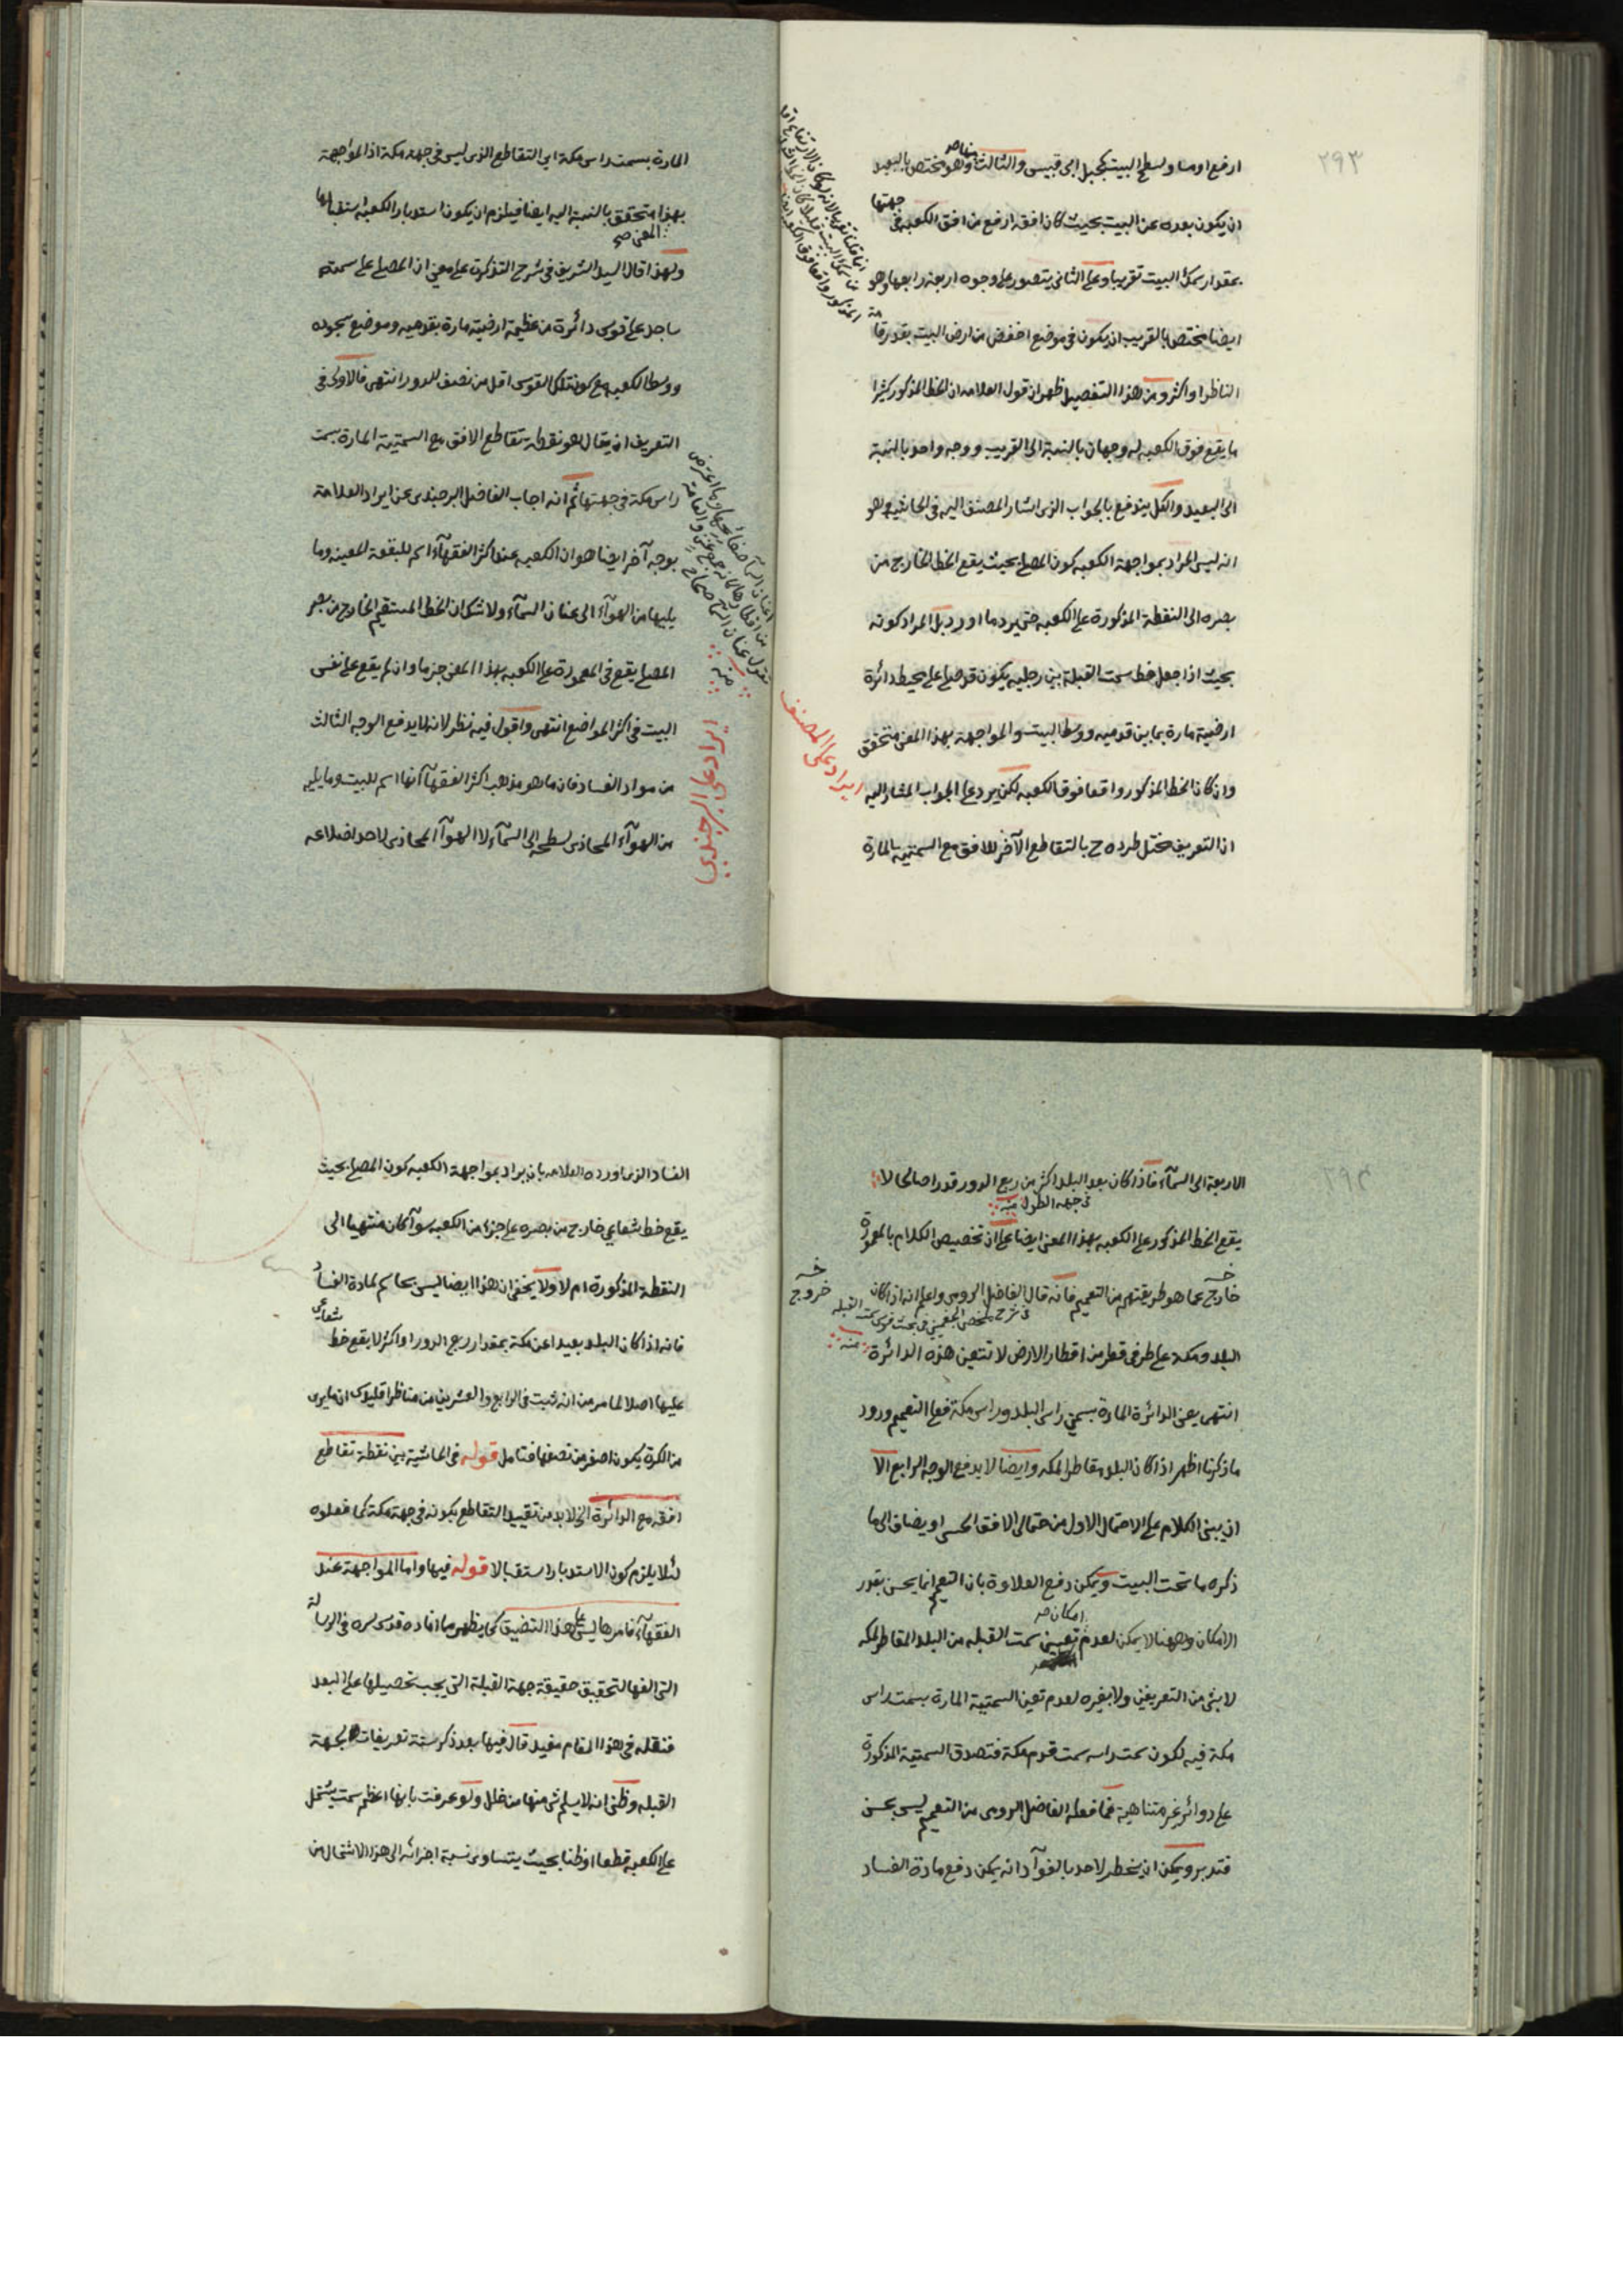 ٢٩٣
ارفع او مساو لسطح البيت كجبل ابى قبيس والثالث منها وهو مختص بالبعيد
ان يكون بعده عن البيت بحيث كان افقه ارفع من افق الكعبه فى جهتها
بمقدار سمك البيت تقريبا وعلى الثانى يتصور على وجوه اربعة رابعها وهو
ايضا مختص بالقريب ان يكون فى موضع اخفض من ارض البيت بقدر قامة
الناظر او اكثر ومن هذا التفصيل ظهر ان قول العلامه ان الخط المذكور كثيرا
ما يقع فوق الكعبه له وجهان بالنسبة الى القريب ووجه واحد بالنسبة
الى البعيد والكل يندفع بالجواب الذى اشار المصنف اليه فى الحاشيه وهو
انه ليس المراد بمواجهة الكعبه كون المصلى بحيث يقع الخط الخارج من
بصره الى النقطة المذكورة على الكعبه حتى يرد ما اورد بل المراد كونه
بحيث اذا جعل خط سمت القبلة بين رجليه يكون قد صلى على محيط دائرة
ارضية مارة بما بين قدميه ووسط البيت والمواجهة بهذا المعنى متحقق
وان كان الخط المذكور واقعا فوق الكعبه لكن يرد على الجواب المشار اليه
ان التعريف مختل طرده ح بالتقاطع الآخر للافق مع السمتيه المارة
ايراد على المصنف
المارة بسمت راس مكة اى التقاطع الذى ليس فى جهة مكة اذ المواجهة
بهذا المعنى صح متحقق بالنسبة اليه ايضا فيلزم ان يكون استدبار الكعبه استقبالها
ولهذا قال السيد الشريف فى شرح التذكرة على معنى ان المصلى على سمته
ساجد على قوس دائرة من عظيمة ارضية مارة بقدميه وموضع سجوده
ووسط الكعبه مع كون تلك القوس اقل من نصف الدور انتهى فالاولى فى
التعريف ان يقال هو نقطة تقاطع الافق مع السمتية المارة بسمت
راس مكة فى جهتها ثم انه اجاب الفاضل البرجندى عن ايراد العلامة
بوجه آخر ايضا هو ان الكعبه عند اكثر الفقهآء اسم للبقعة المعينه وما
يليها من الهوآء الى عنان السمآء ولا شك ان الخط المستقيم الخارج من بصر
المصلى يقع فى المعمورة على الكعبه بهذا المعنى جزما وان لم يقع على نفس
البيت فى اكثر المواضع انتهى واقول فيه نظر لانه لا يدفع الوجه الثالث
من مواد الفساد فان ما هو مذهب اكثر الفقهآء انها اسم للبيت وما يليه
من الهوآء المحاذى لسطحه الى السمآء لا الهوآء المحاذى لاحد اضلاعه
ايراد على البرجندى
٢٩٤
الاربعة الى السمآء فاذا كان بعد البلد اكثر من ربع الدور قدرا صالحا لا
فى جهة الطول منه
يقع الخط المذكور على الكعبه بهذا المعنى ايضا على ان تخصيص الكلام بالمعمورة
خارج عما هو طريقتهم من التعميم فانه قال الفاضل الرومى واعلم انه اذا كان
خروج
فى شرح ملخص الجغمينى فى بحث قوس سمت القبله منه
البلد ومكة على طرفى قطر من اقطار الارض لا تتعين هذه الدائرة
انتهى يعنى الدائرة المارة بسمتى راس البلد وراس مكة فعلى التعميم ورود
ما ذكرنا اظهر اذا كان البلد مقاطرا لمكه وايضا لا يدفع الوجه الرابع الا
ان يبنى الكلام على الاحتمال الاول من احتمالى الافق الحسى او يضاف الى ما
ذكره ما تحت البيت ويمكن دفع العلاوة بان التعميم انما يحسن بقدر
الامكان وههنا لا يمكن لعدم امكان صح تعيين سمت القبله من البلد المقاطر لمكه
لا بشئ من التعريفين ولا بغيره لعدم تعين السمتية المارة بسمت راس
مكة فيه لكون سمت راسه سمت قدم مكة فتصدق السمتية المذكورة
على دوائر غير متناهية فما فعله الفاضل الرومى من التعميم ليس بحسن
فتدبر ويمكن ان يخطر لاحد بالفوآد انه يمكن دفع مادة الفساد
الفساد الذى اورده العلامه بان يراد بمواجهة الكعبه كون المصلى بحيث
يقع خط شعاعى خارج من بصره على جزء من الكعبه سوآء كان منتهيا الى
النقطة المذكورة ام لا ولا يخفى ان هذا ايضا ليس بحاسم لمادة الفساد
فانه اذا كان البلد بعيدا عن مكة بمقدار ربع الدور او اكثر لا يقع خط شعاعى
عليها اصلا لما مر من انه ثبت فى الرابع والعشرين من مناظر اقليدس ان ما يرى
من الكرة يكون اصغر من نصفها فتامل قوله فى الحاشية بين نقطة تقاطع
افقه مع الدائرة الخ لا بد من تقييد التقاطع بكونه فى جهة مكة كما فعلوه
لئلا يلزم كون الاستدبار استقبالا قوله فيها واما المواجهة عند
الفقهآء فامرها ليس على هذا التضييق كما يظهر مما افاده قدس سره فى الرسالة
التى الفها لتحقيق حقيقة جهة القبلة التى يجب تحصيلها على البعد
فنقله فى هذا المقام مفيد قال فيها بعد ذكر ستة تعريفات لجهة
القبله وظنى انه لا يسلم شئ منها من خلل ولو عرفت بانها اعظم سمت يشتمل
على الكعبه قطعا او ظنا بحيث يتساوى نسبة اجزائه الى هذا الاشتمال من